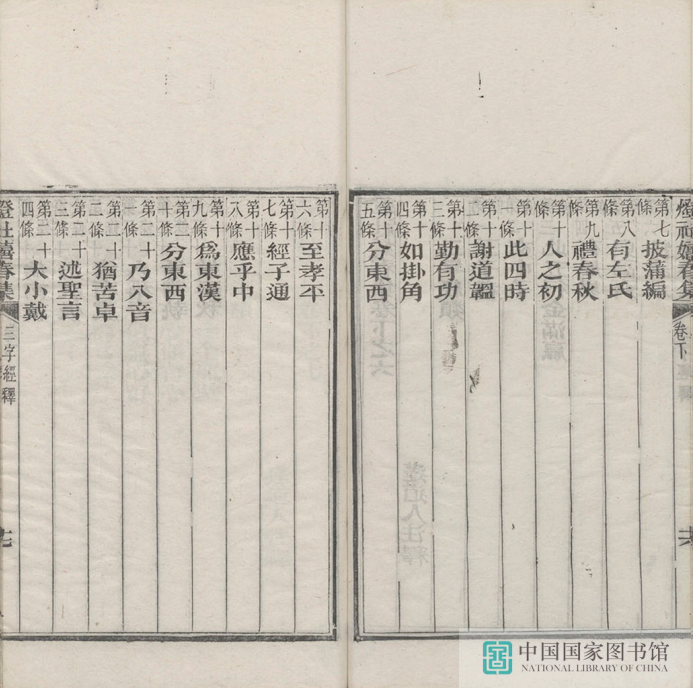 燈社嬉春集
卷下
第七條 披蒲編
第八條 有左氏
第九條 禮春秋
第十條 人之初
第十一條 此四時
第十二條 謝道韞
第十三條 勤有功
第十四條 如掛角
第十五條 分東西
第十六條 至孝平
第十七條 經子通
第十八條 應乎中
第十九條 爲東漢
第二十條 分東西
第二十一條 乃八音
第二十二條 猶苦卓
第二十三條 述聖言
第二十四條 大小戴
燈社嬉春集
三字經釋
中国国家图书馆
NATIONAL LIBRARY OF CHINA